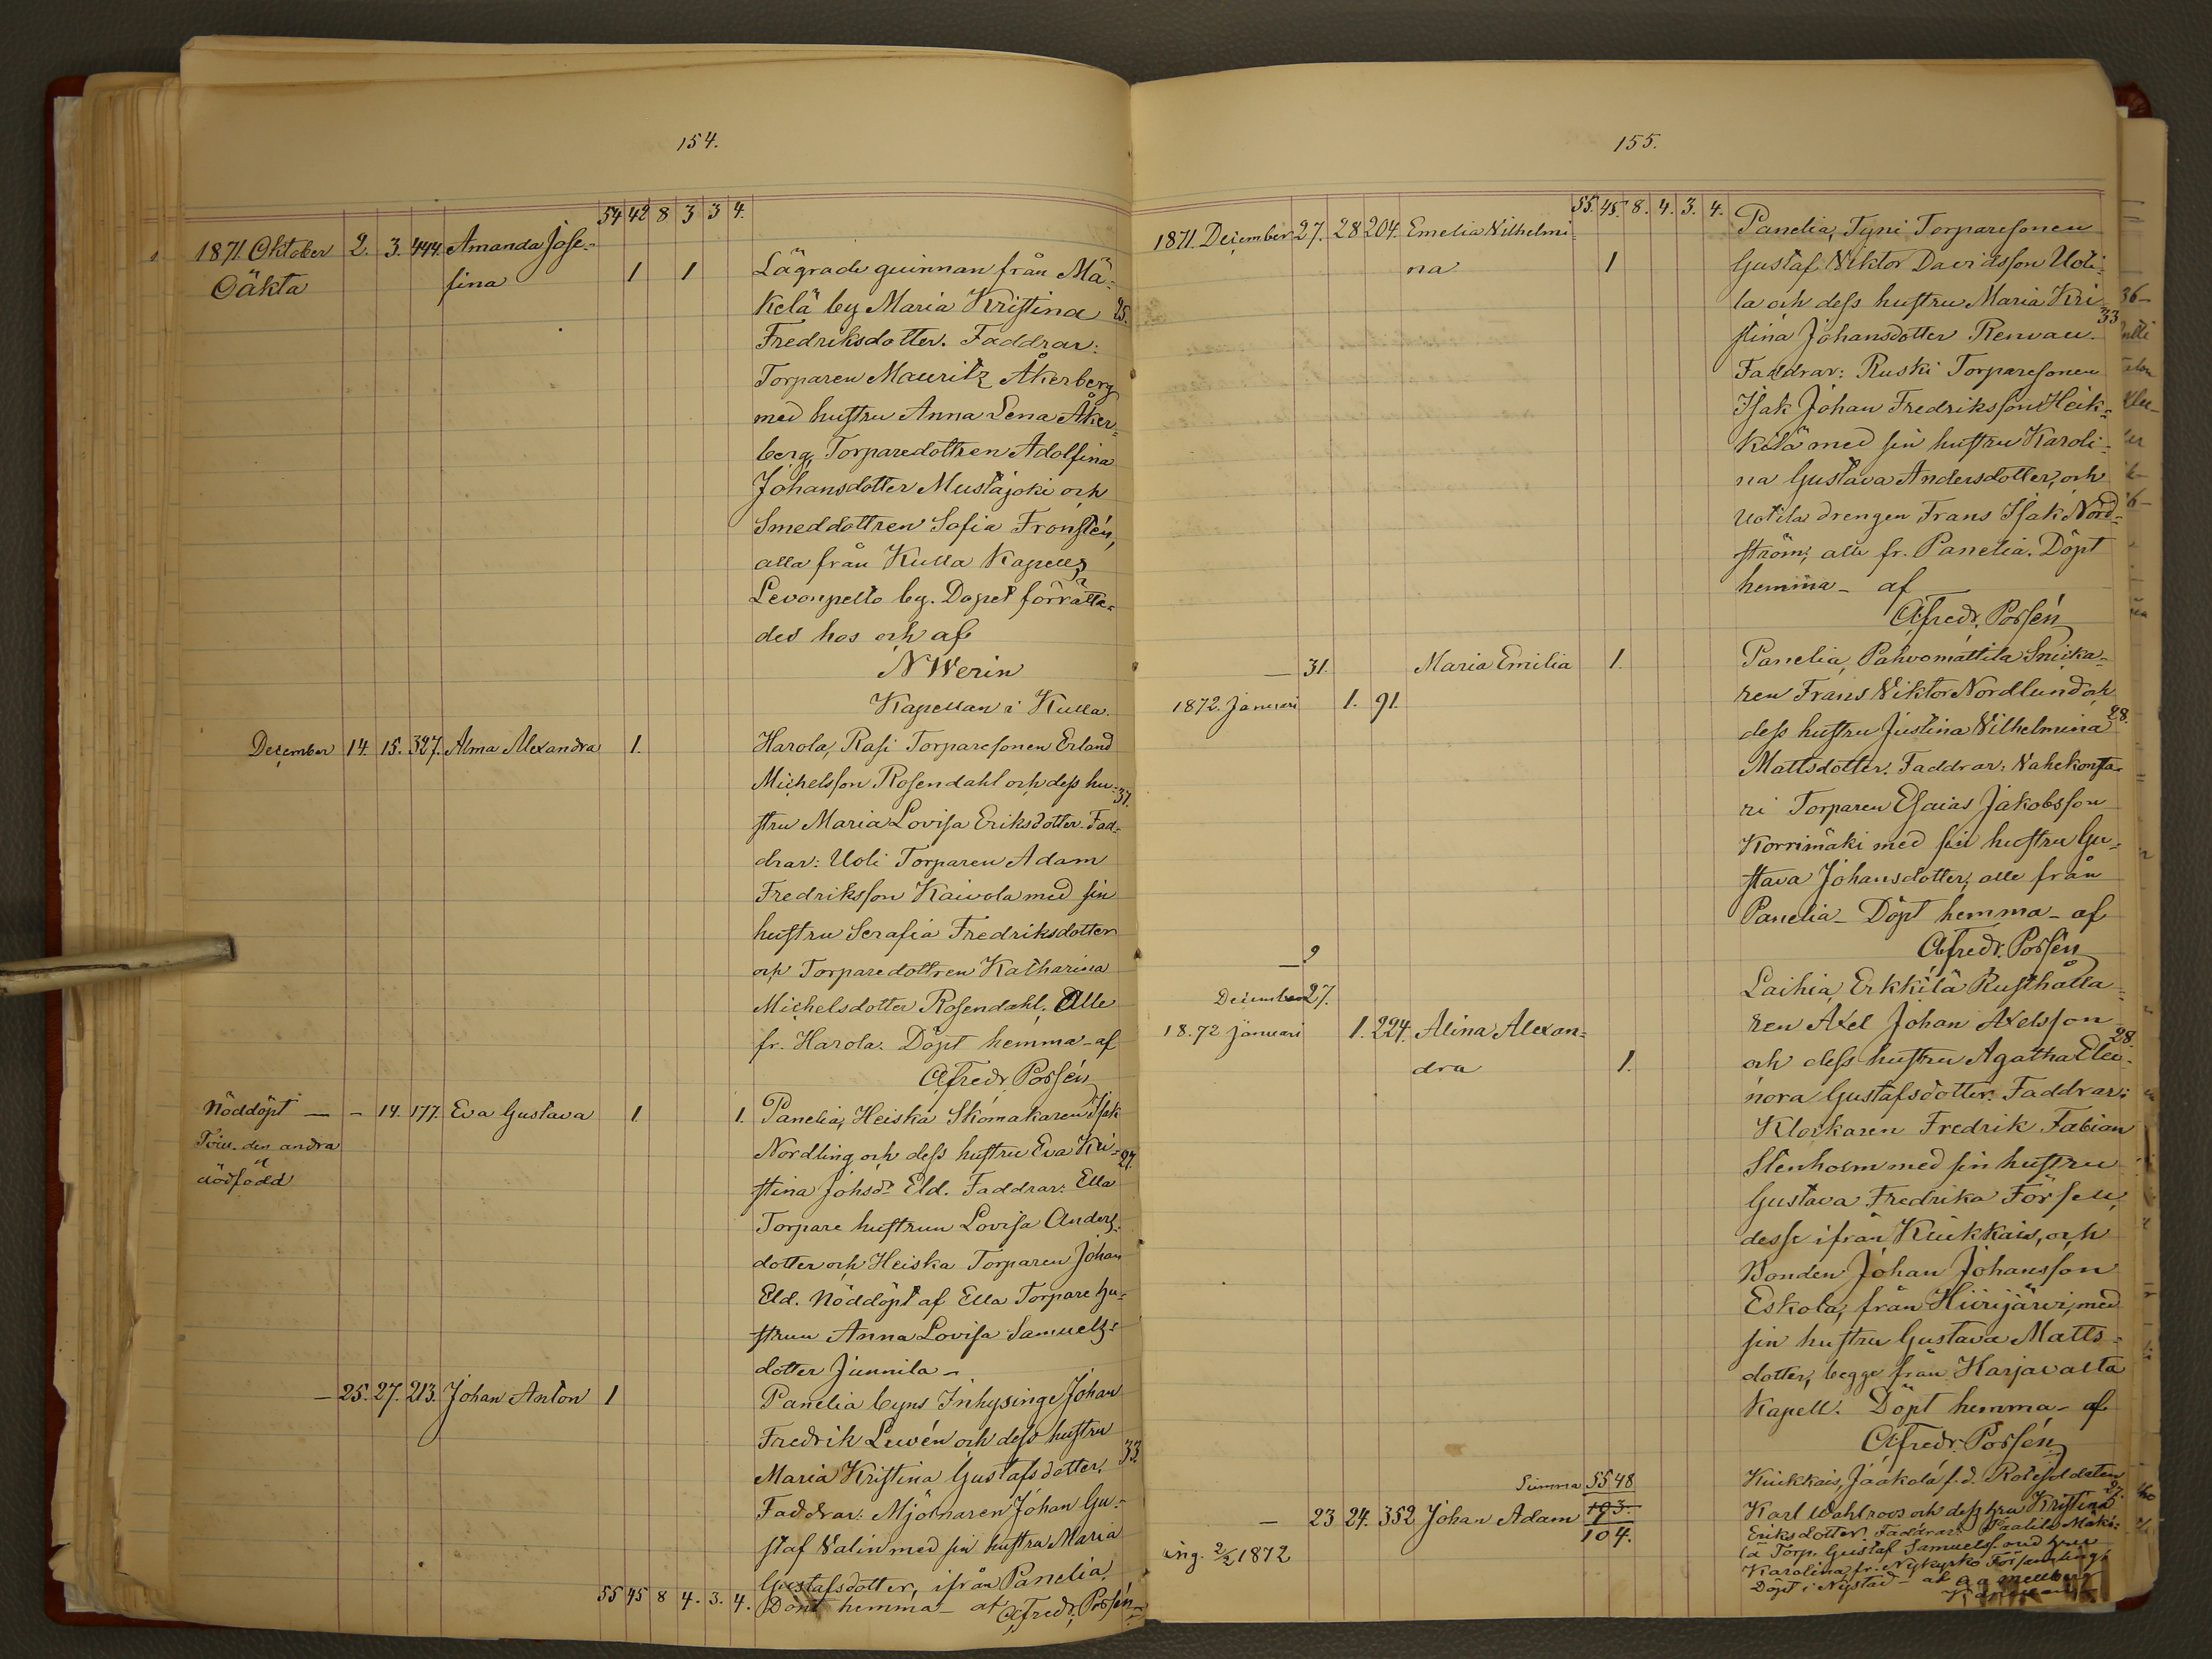 154.
54 42 8 3 3 4.
1871. Oktober 2. 3. 444. Amanda Jose-
Oäkta fina 1 1 Lägrade quinnan från Mä-
kelä by Maria Kristina 25.
Fredriksdotter. Faddrar:
Torparen Mauritz Åkerberg
med hustru Anna Lena Åker-
berg, Torparedottren Adolfina
Johansdotter Mustajoki och
Smeddottren Sofia Fronstén,
alla från Kulla Kapells
Levonpelto by. Dopet förrätta-
des hos och af
N Werin
Kapellan i Kulla.
December 14. 15. 327. Alma Alexandra 1. Harola, Rasi Torparesonen Erland
Michelsson Rosendahl och dess hu- 37.
stru Maria Lovisa Eriksdotter. Fad-
drar: Uoli Torparen Adam
Fredriksson Kaivola med sin
hustru Serafia Fredriksdotter
och Torparedottren Katharina
Michelsdotter Rosendahl, Alle
fr. Harola. Döpt hemma - af
Fredr. Possén
Nöddöpt — - 14. 177. Eva Gustava 1 1. Panelia, Heiska Skomakaren Isak
Tvill. den andra Nordling och dess hustru Eva Kri- 27.
dödfödd stina Johsdr Eld. Faddrar: Ella
Torpare hustrun Lovisa Anders-
dotter och Heiska Torparen Johan
Eld. Nöddöpt af Ella Torpare hu-
strun Anna Lovisa Samuels-
dotter Junnila -
— 25. 27. 213. Johan Anton 1 Panelia byns Inhysinge Johan
Fredrik Luvén och dess hustru
Maria Kristina Gustafsdotter. 33
Faddrar: Mjölnaren Johan Gu-
staf Valin med sin hustru Maria
Gustafsdotter, ifrån Panelia.
55 45 8 4. 3. 4. Döpt hemma - af Fredr. Possén
155.
55. 45. 8. 4. 3. 4.
1871. December 27. 28 204. Emelia Vilhelmi- Panelia, Tyni Torparesonen
na 1 Gustaf Viktor Davidsson Uoti-
la och dess hustru Maria Kri- 33
stina Johansdotter Renvau.
Faddrar: Ruski Torparesonen
Isak Johan Fredriksson Heik-
kilä med sin hustru Karoli-
na Gustava Andersdotter, och
Uotila drengen Frans Isak Nord-
ström, alle fr. Panelia. Döpt
hemma - af
Fredr. Possén
— 31. Maria Emilia 1. Panelia, Pahvomattila Snicka-
1872. Januari 1. 91. ren Frans Viktor Nordlund och
dess hustru Justina Vilhelmina 28.
Mattsdotter. Faddrar: Vahekonsa-
ri Torparen Esaias Jakobsson
Korrimäki med sin hustru Gu-
stava Johansdotter, alle från
Panelia - Döpt hemma - af
Fredr. Possén
— 9
December 27. Laihia, Erkkilä Rusthålla-
18.72 Januari 1. 224. Alina Alexan- ren Axel Johan Axelsson 28.
dra 1. och dess hustru Agatha Eleo-
nora Gustafsdotter. Faddrar:
Klockaren Fredrik Fabian
Stenholm med sin hustru
Gustava Fredrika Försell,
desse ifrån Kiukkais, och
Bonden Johan Johansson
Eskola, från Hiirijärvi, med
sin hustru Gustava Matts-
dotter, begge från Harjavalta
Kapell. Döpt hemma - af
Fredr. Possén
Summa 55 48 Kiukkais, Jaakola f.d. Rotesoldaten 27.
— 23 24. 352 Johan Adam 103. Karl Wahlroos och dess hru Kristina
104. Eriksdotter. Faddrar:
ing. 2/2 1872 lä Torp. Gustaf Samuels. med hru
Karolina, fr. Nykyrko Församling.
Döpt i Nystad - af